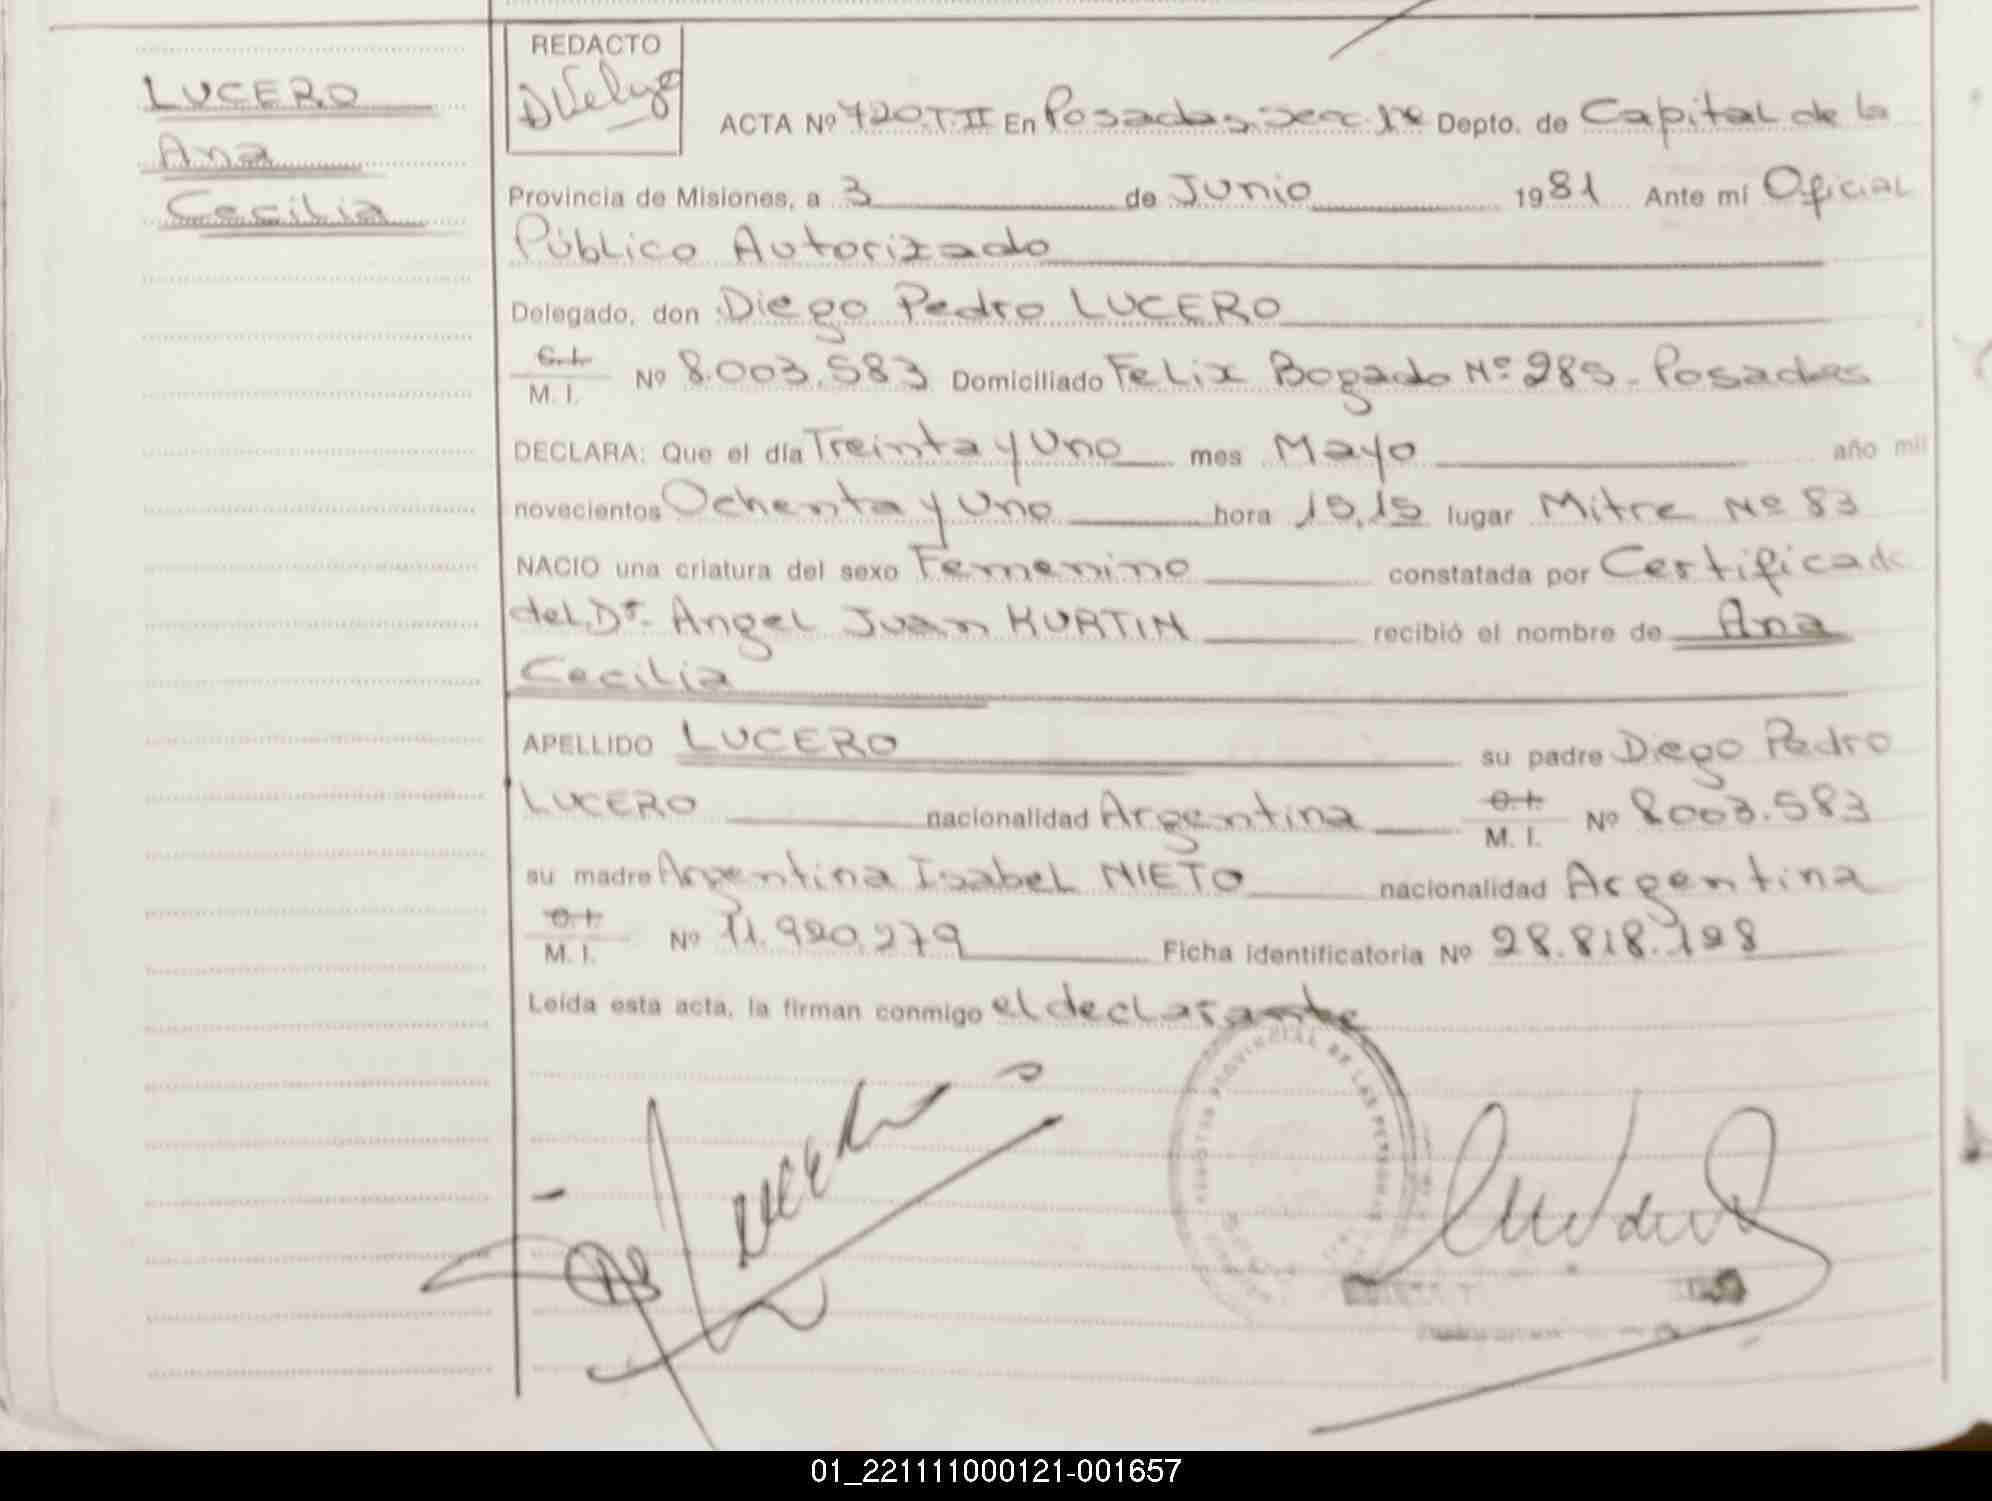 LUCERO
Ana
Cecilia
REDACTO
ACTA Nº 720.T.II En Posadas, secc. 1ª Depto. de Capital de la
Provincia de Misiones, a 3 de Junio 1981 Ante mí Oficial
Público Autorizado
Delegado, don Diego Pedro LUCERO
C.I.
M. I. Nº 8.003.583 Domiciliado Felix Bogado Nº 285 - Posadas
DECLARA: Que el día Treinta y Uno mes Mayo año mil
novecientos Ochenta y Uno hora 15,15 lugar Mitre Nº 83
NACIO una criatura del sexo Femenino constatada por Certificado
del Dr. Angel Juan KURTIN recibió el nombre de Ana
Cecilia
APELLIDO LUCERO su padre Diego Pedro
LUCERO nacionalidad Argentina C.I.
M. I. Nº 8.003.583
su madre Argentina Isabel NIETO nacionalidad Argentina
C.I.
M. I. Nº 11.920.279 Ficha identificatoria Nº 28.818.128
Leída esta acta, la firman conmigo el declarante
PROVINCIAL DE LAS PERSONAS
01_221111000121-001657